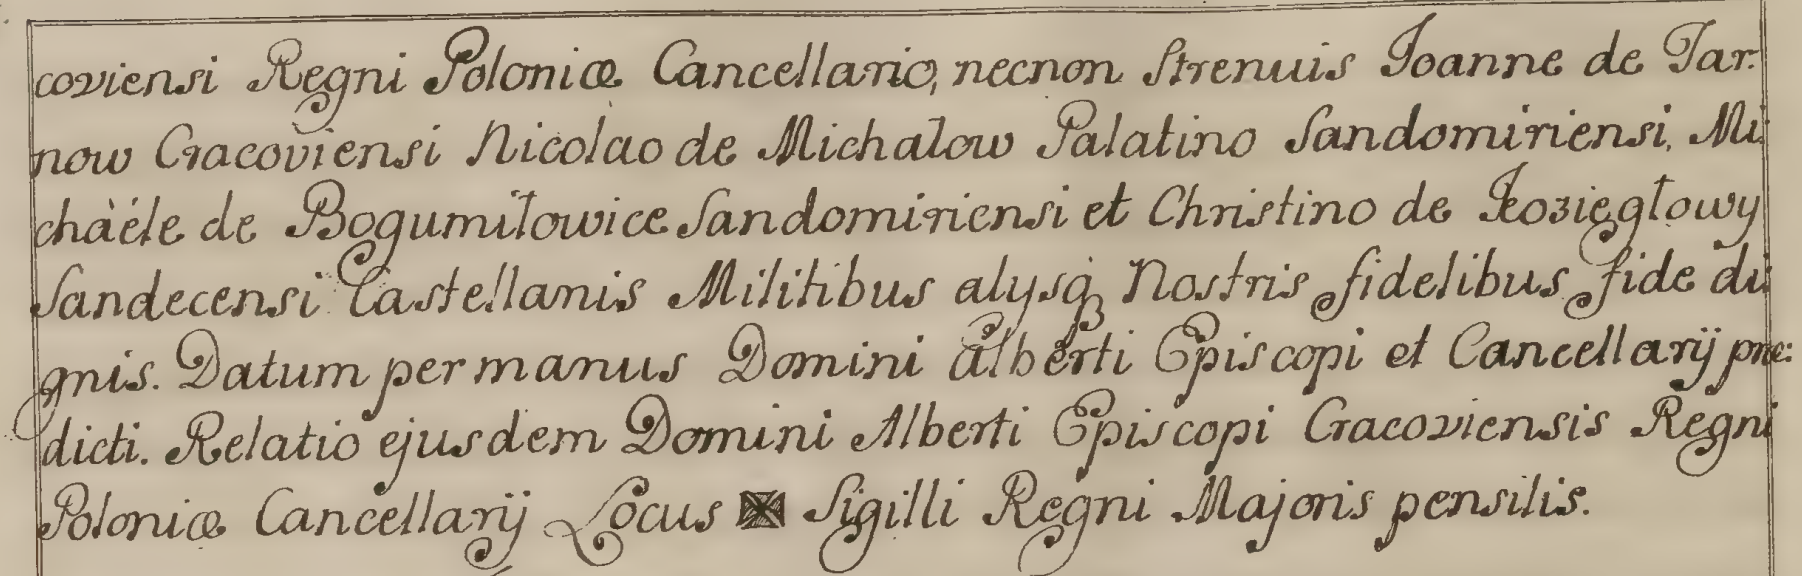 coviensi Regni Poloniæ Cancellario, necnon Strenuis Joanne de Tar:
now Cracoviensi Nicolao de Michałow Palatino Sandomiriensi, Mi:
chàéle de Bogumiłowice Sandomiriensi et Christino de Kozięgłowy
Sandecensi Castellanis Militibus alysqꝫ Nostris fidelibus fide di:
gnis. Datum per manus Domini Alberti Episcopi et Cancellarij præ:
dicti. Relatio ejusdem Domini Alberti Episcopi Cracoviensis Regni
Poloniæ Cancellarij Locus ✠ Sigilli Regni Majoris pensilis.